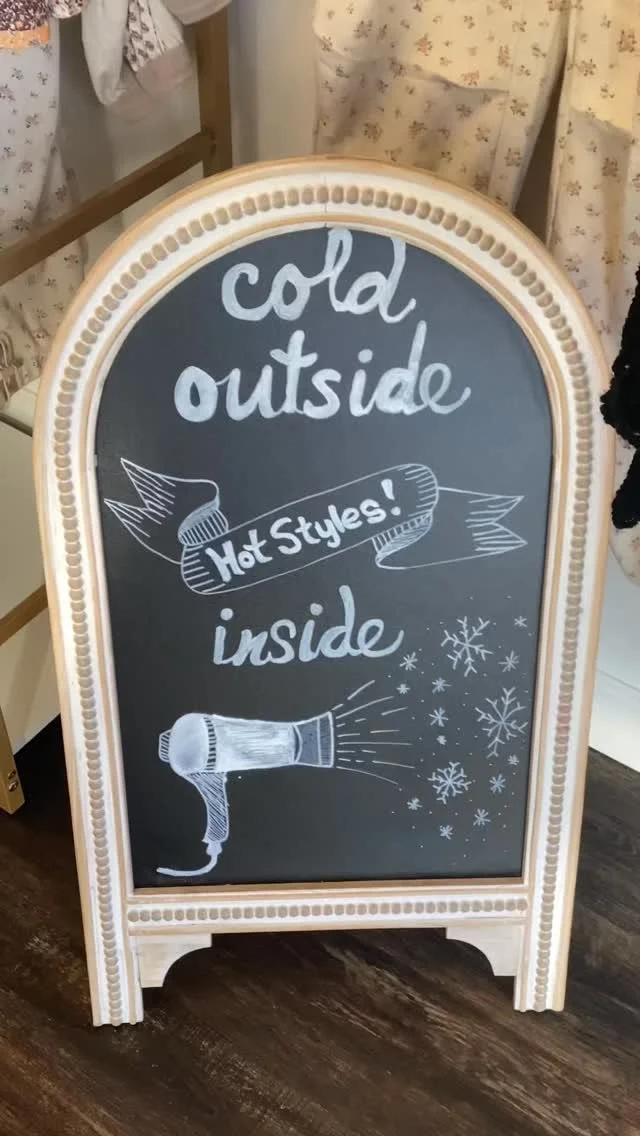 cold
outside
Hot Styles!
inside